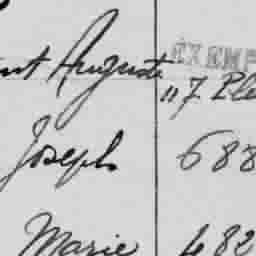 Auguste EXEMP
"7 Ple
Joseph 688
Marie 482